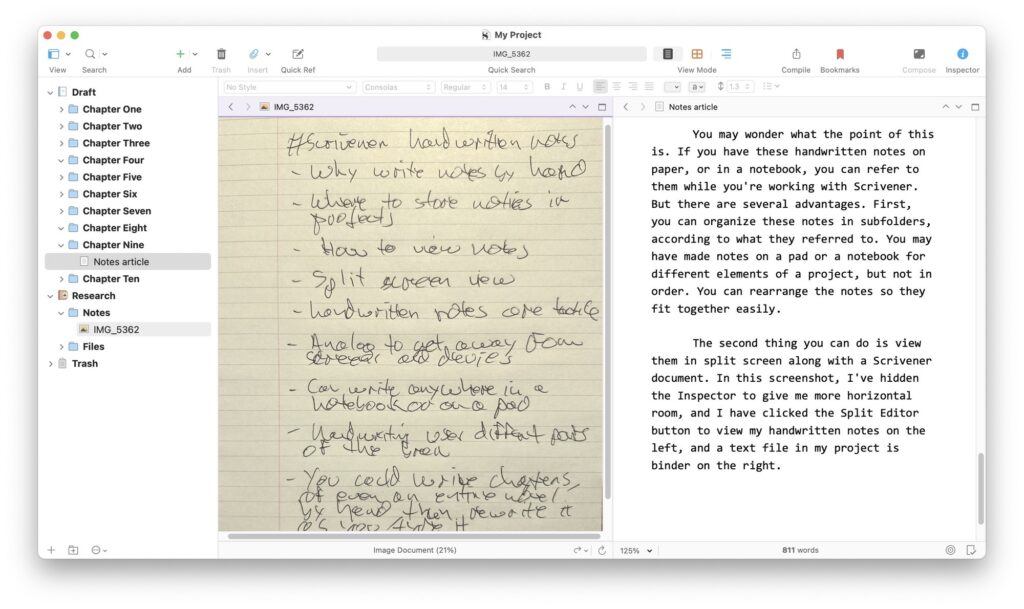 My Project
IMG_5362
View
Search
Add
Trash
Insert
Quick Ref
Quick Search
View Mode
Compile
Bookmarks
Compose
Inspector
No Style
Consolas
Regular
14
B
I
U
a
1.3
Draft
Chapter One
Chapter Two
Chapter Three
Chapter Four
Chapter Five
Chapter Six
Chapter Seven
Chapter Eight
Chapter Nine
Notes article
Chapter Ten
Research
Notes
IMG_5362
Files
Trash
IMG_5362
#Scrivener handwritten notes
- Why write notes by hand
- Where to store notes in
projects
- How to view notes
- Split screen view
- handwritten notes are tactile
- Analog to get away from
screens and devices
- Can write anywhere in a
notebook or on a pad
- Handwriting uses different parts
of the brain
- You could write chapters,
or even an entire novel,
by hand then rewrite it
as you type it
Image Document (21%)
Notes article
You may wonder what the point of this
is. If you have these handwritten notes on
paper, or in a notebook, you can refer to
them while you're working with Scrivener.
But there are several advantages. First,
you can organize these notes in subfolders,
according to what they referred to. You may
have made notes on a pad or a notebook for
different elements of a project, but not in
order. You can rearrange the notes so they
fit together easily.
The second thing you can do is view
them in split screen along with a Scrivener
document. In this screenshot, I've hidden
the Inspector to give me more horizontal
room, and I have clicked the Split Editor
button to view my handwritten notes on the
left, and a text file in my project is
binder on the right.
125%
811 words